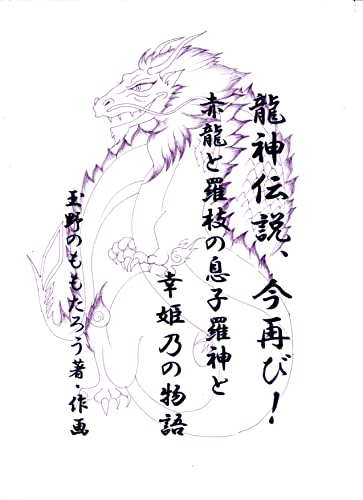 龍神伝説、今再び！
赤龍と羅枝の息子羅神と
幸姫乃の物語
玉野のももたろう著・作画